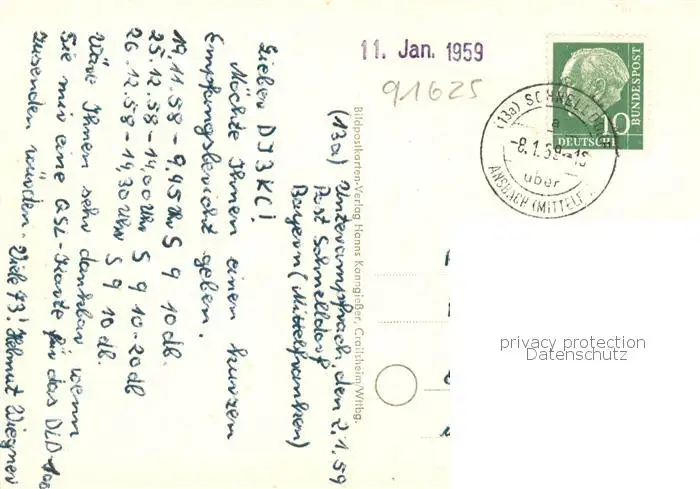 11. Jan. 1959
91625
BUNDESPOST
10
DEUTSCHE
(13a) SCHNELLDORF
a
-8.1.59-18
über
ANSBACH (MITTELF
Bildpostkarten-Verlag Hanns Kanngießer, Crailsheim/Wttbg.
(13a) Unterampfrach, den 2.1.59
Post Schnelldorf
Bayern (Mittelfranken)
Lieber DJ3KC!
Möchte Ihnen einen kurzen
Empfangsbericht geben.
19.11.58 - 9,45 Uhr S 9 10 db.
25.12.58 - 14,00 Uhr S 9 10-20 db
26.12.58 - 14,30 Uhr S 9 10 db.
Wäre Ihnen sehr dankbar wenn
Sie mir eine QSL-Karte für das DLD-100
zusenden würden. Viele 73! Helmut Wiegner
privacy protection
Datenschutz